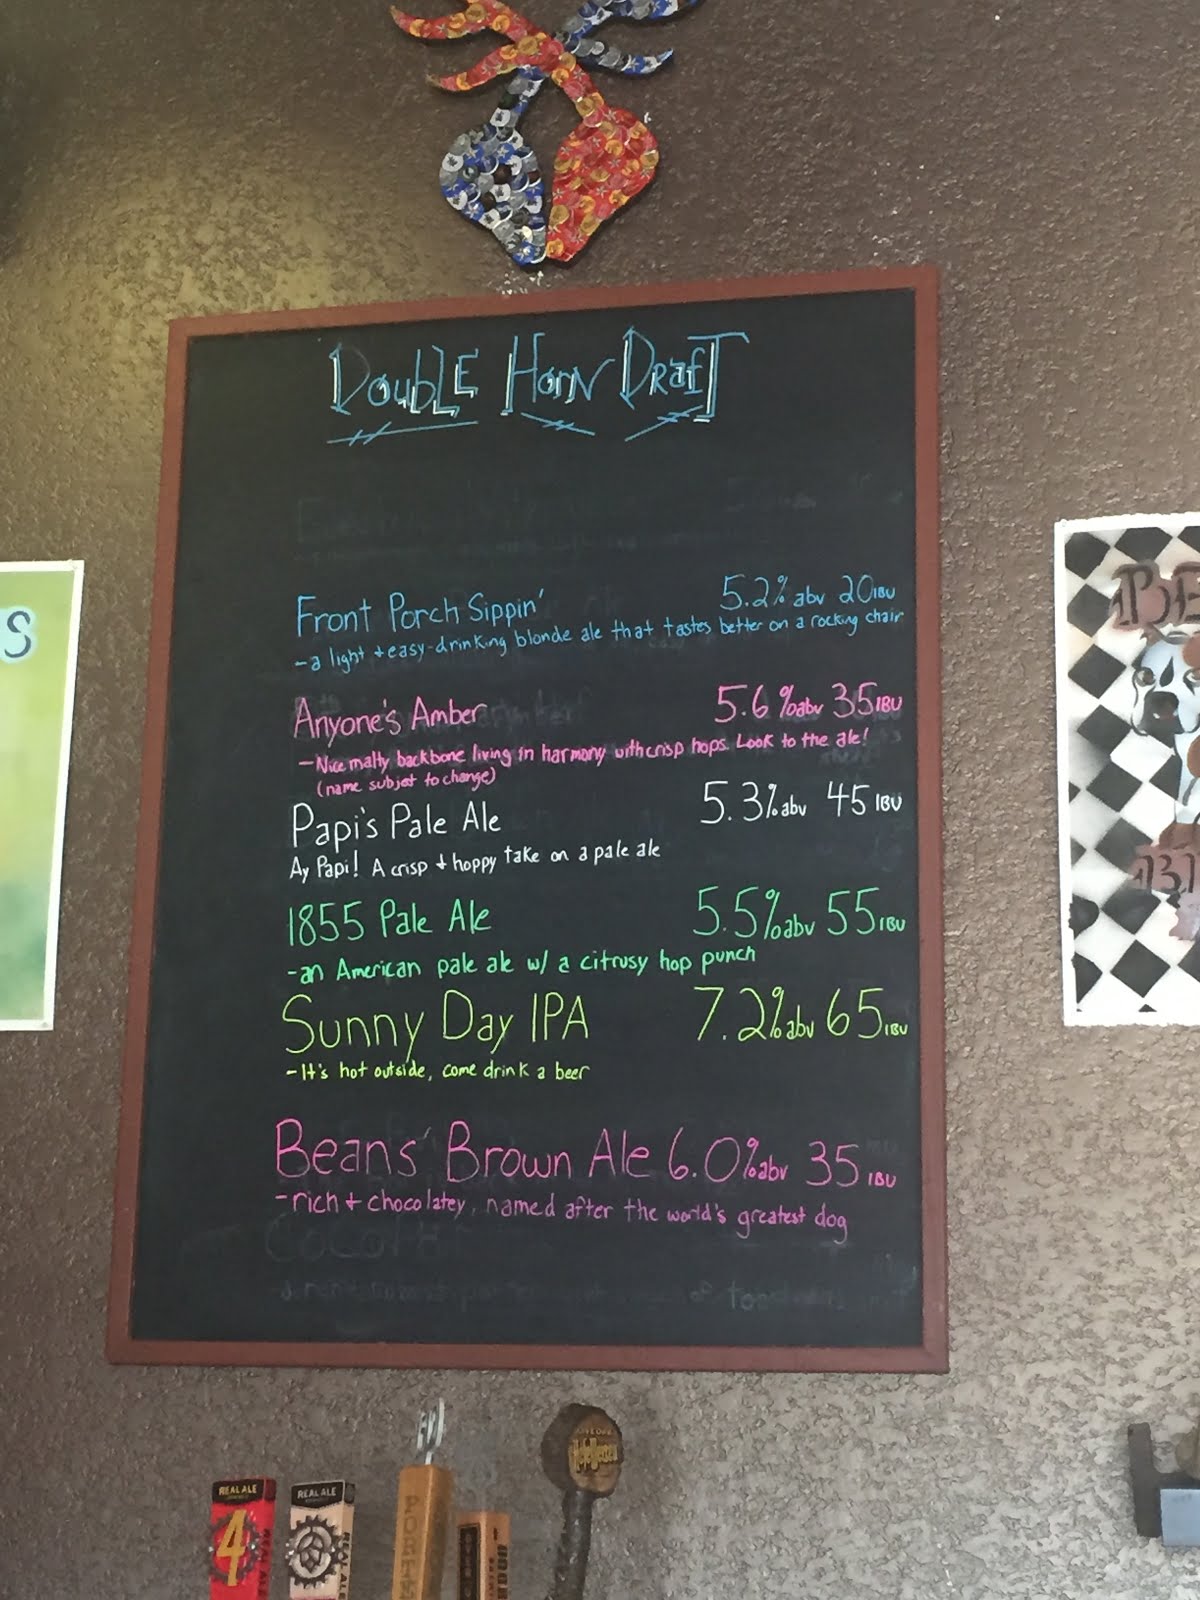 S
Double Horn Draft
Front Porch Sippin' 5.2% abv 20 IBU
- a light + easy-drinking blonde ale that tastes better on a rocking chair
Anyone's Amber 5.6% abv 35 IBU
- Nice malty backbone living in harmony with crisp hops. Look to the ale!
(name subject to change)
Papi's Pale Ale 5.3% abv 45 IBU
Ay Papi! A crisp + hoppy take on a pale ale
1855 Pale Ale 5.5% abv 55 IBU
- an American pale ale w/ a citrusy hop punch
Sunny Day IPA 7.2% abv 65 IBU
- It's hot outside, come drink a beer
Beans' Brown Ale 6.0% abv 35 IBU
- rich + chocolatey, named after the world's greatest dog
REAL ALE
4
REAL ALE
REAL ALE
REAL ALE